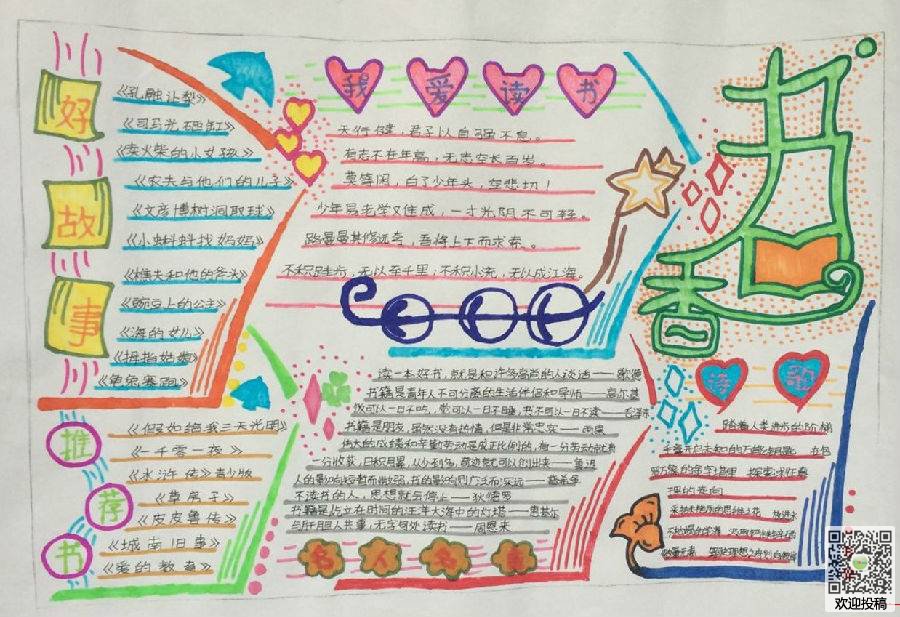 好故事
《孔融让梨》
《司马光砸缸》
《卖火柴的小女孩》
《农夫与他们的儿子》
《文彦博树洞取球》
《小蝌蚪找妈妈》
《樵夫和他的斧头》
《豌豆上的公主》
《海的女儿》
《拇指姑娘》
《龟兔赛跑》
推荐书
《假如给我三天光明》
《一千零一夜》
《水浒传》青少版
《草房子》
《皮皮鲁传》
《城南旧事》
《爱的教育》
我爱读书
天行健，君子以自强不息。
有志不在年高，无志空长百岁。
莫等闲，白了少年头，空悲切！
少年易老学又难成，一寸光阴不可轻。
路曼曼其修远兮，吾将上下而求索。
不积跬步，无以至千里，不积小流，无以成江海。
读一本好书，就是和许多高尚的人谈话——歌德
书籍是青年人不可分离的生活伴侣和导师——高尔基
饭可以一日不吃，觉可以一日不睡，书不可以一日不读——毛泽东
书籍是朋友，虽然没有热情，但是非常忠实——雨果
伟大的成绩和辛勤劳动是成正比例的，有一分劳动就有
一分收获，日积月累，从少到多，奇迹就可以创出来——鲁迅
不读书的人，思想就会停止——狄德罗
书籍是伫立在时间的汪洋大海中的灯塔——惠普尔
与肝胆人共事，无字句处读书——周恩来
名人名言
书香
诗歌
踏着人类进步的阶梯
欢迎投稿